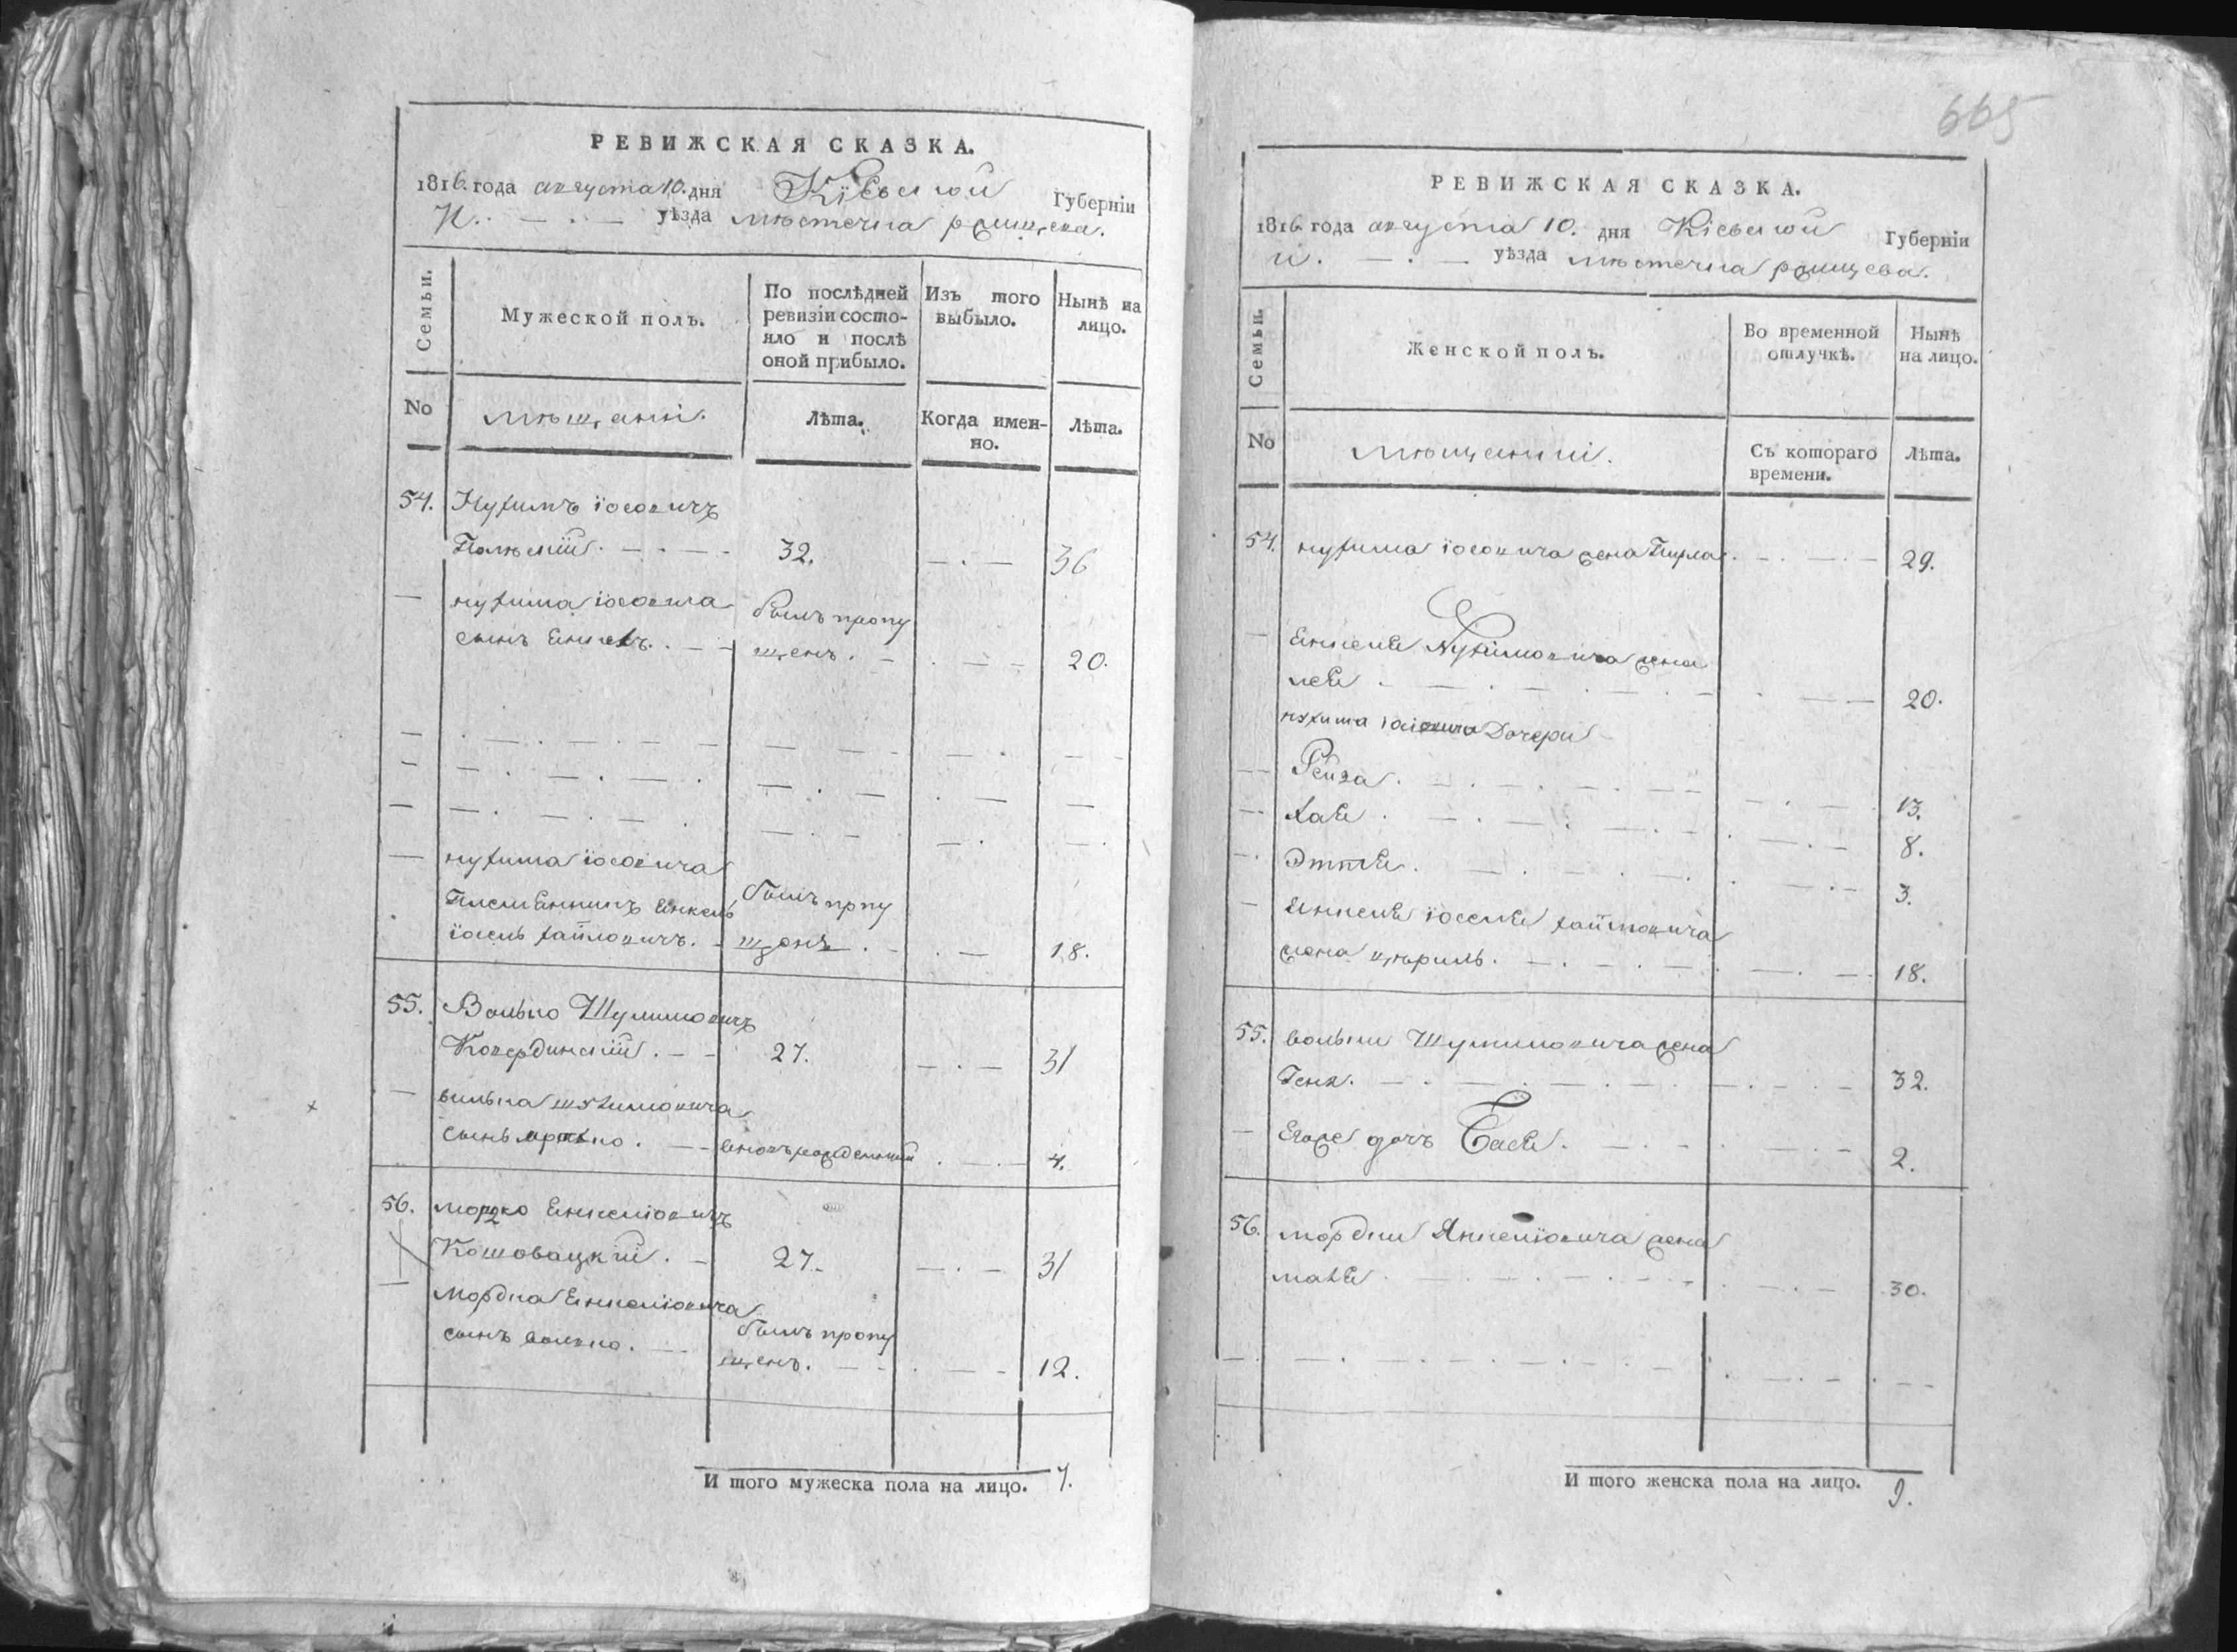 РЕВИЖСКАЯ СКАЗКА.
1816. года августа 10. дня Кіевской Губерніи
уѣзда мѣстечка
Семьи.
Мужеской полъ.
По послѣдней ревизіи состояло и послѣ оной прибыло.
Изъ того выбыло.
Нынѣ на лицо.
No
мѣщани.
Лѣта.
Когда именно.
Лѣта.
54. Нухимъ іосовичъ
32. 36
нухима іосовича былъ пропу
сынъ щенъ. 20.
нухима іосовича
племенникъ Енкель былъ пропу
іосель щонъ. 18.
55. Волько Шулимовичъ
27. 31
волька шулимовича
сынъ вновьрожденный 4.
56. морко Енкеліовичъ
Кошовацкій. 27. 31
Мордка Енкеліовича
сынъ волько. былъ пропу
щенъ. 12.
И того мужеска пола на лицо. 7.
665
РЕВИЖСКАЯ СКАЗКА.
1816. года августа 10. дня Кіевской Губерніи
уѣзда мѣстечка
Семьи.
Женской полъ.
Во временной отлучкѣ.
Нынѣ на лицо.
No
мѣщанки.
Съ котораго времени.
Лѣта.
54. нухима іосовича жена Перла. 29.
Енкеля Нухимовича жена
лея 20.
нухима іосовича Дочери
Рейза. 13.
хая. 8.
Эттля. 3.
Енкеля іоселя
жена цѣриль. 18.
55. вольки Шулимовича жена
Геня. 32.
Егоже дочь Бася. 2.
56. мордки Янкеліовича жена
малѣ 30.
И того женска пола на лицо. 9.